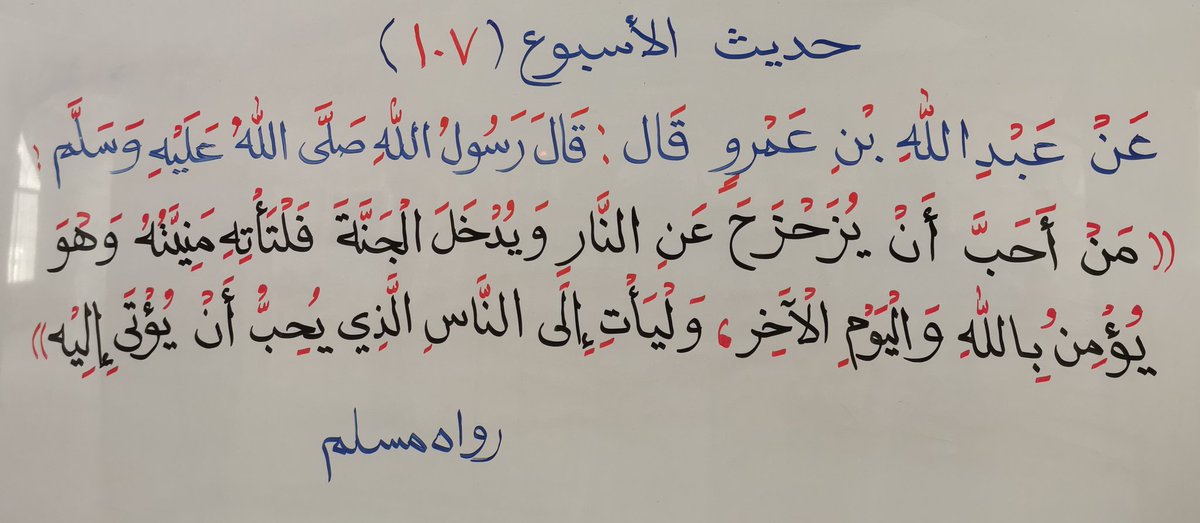 حديث الأسبوع (١٠٧)
عَنْ عَبْدِ اللهِ بْنِ عَمْرٍو قَال : قَالَ رَسُولُ اللهِ صَلَّى اللهُ عَلَيْهِ وَسَلَّم :
(( مَنْ أَحَبَّ أَنْ يُزَحْزَحَ عَنِ النَّارِ وَيُدْخَلَ الْجَنَّةَ فَلْتَأْتِهِ مَنِيَّتُهُ وَهُوَ
يُؤْمِنُ بِاللهِ وَالْيَوْمِ الْآخِرِ ، وَلْيَأْتِ إِلَى النَّاسِ الَّذِي يُحِبُّ أَنْ يُؤْتَى إِلَيْهِ ))
رواه مسلم